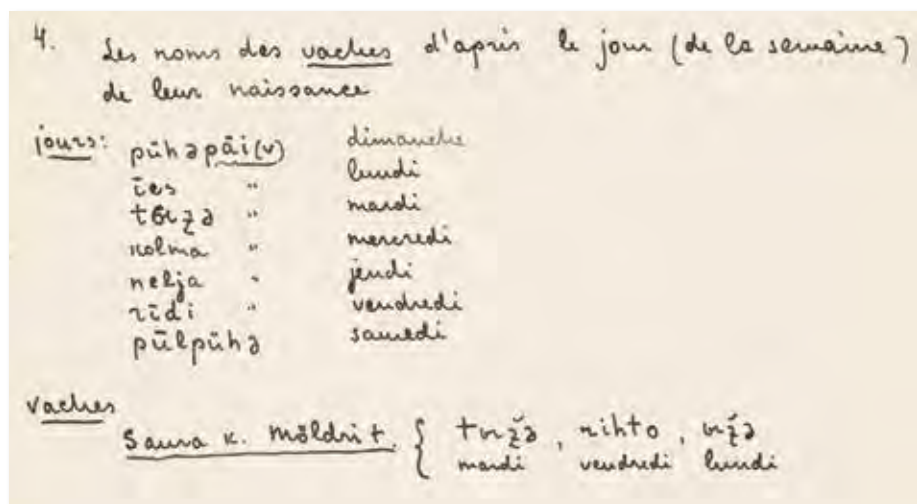 4. Les noms des vaches d'après le jour (de la semaine)
de leur naissance
jours: pūhəpäi(v) dimanche
ī̮es " lundi
" mardi
kolma " mercredi
nelja " jeudi
rīdi " vendredi
pūlpūhə samedi
vaches
Saura k. Möldri t. { , rihto ,
mardi vendredi lundi